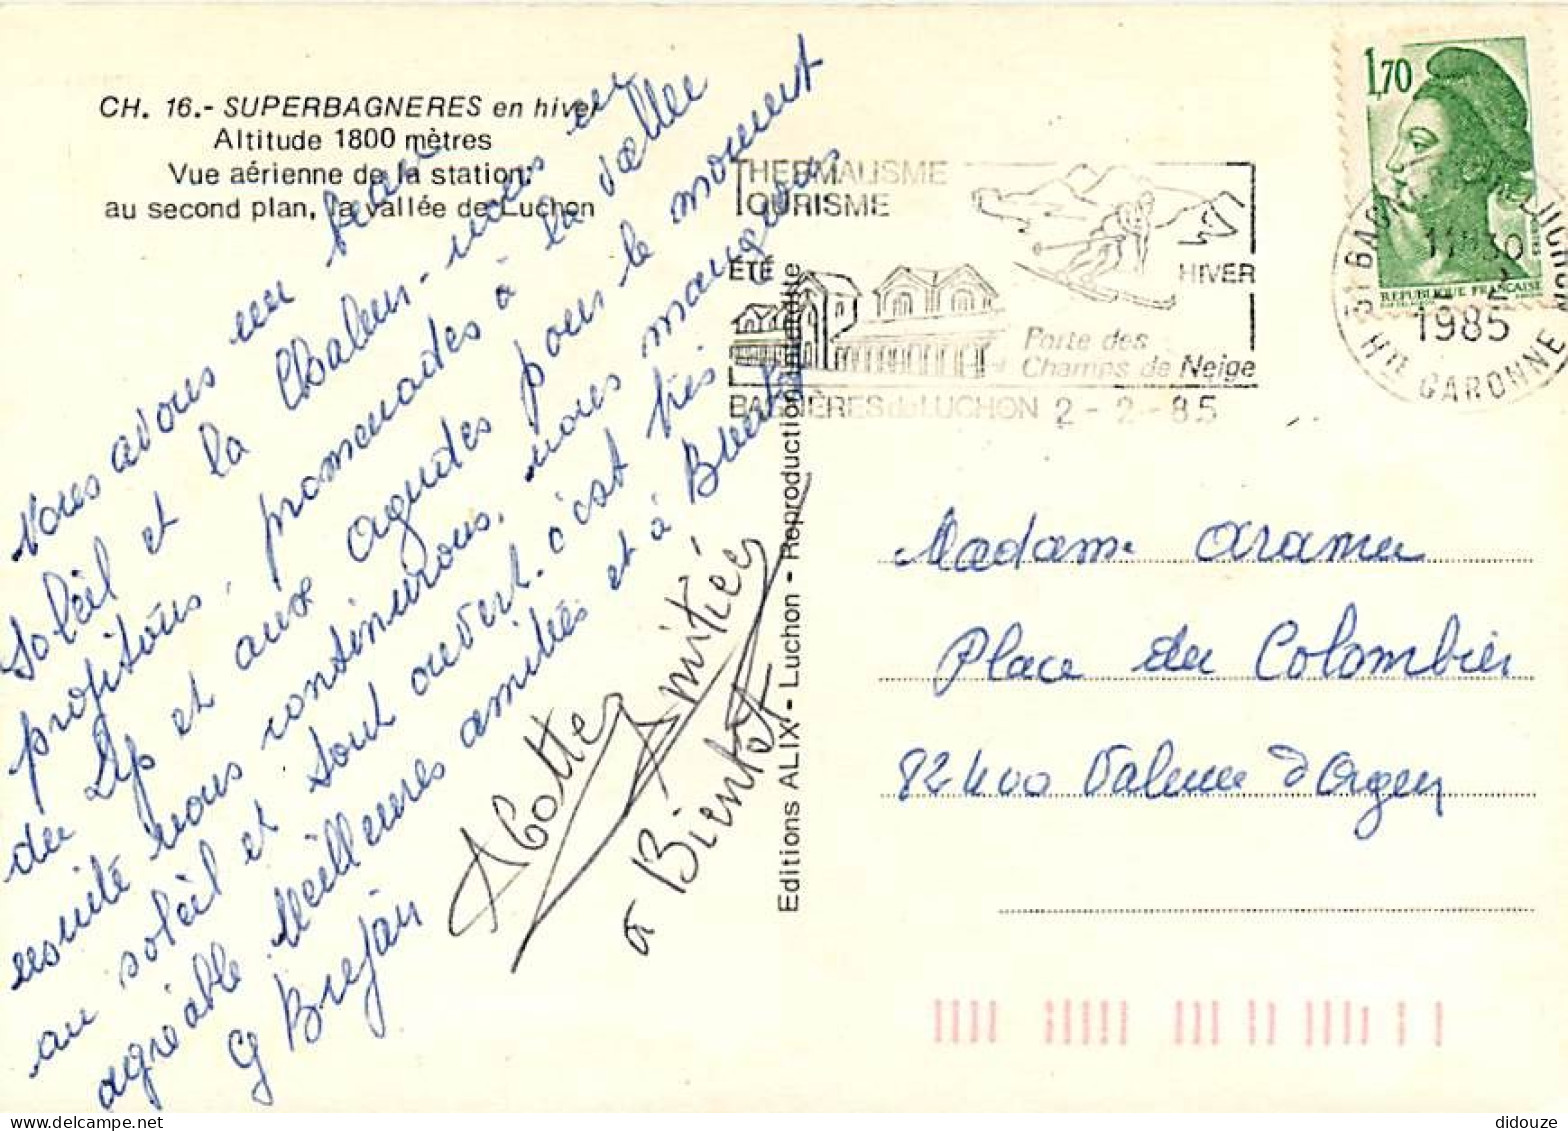 CH. 16.- SUPERBAGNERES en hiver
Altitude 1800 mètres
Vue aérienne de la station;
au second plan, la vallée de Luchon
THERMALISME
TOURISME
ÉTÉ
HIVER
Porte des
Champs de Neige
BAGNÈRES de LUCHON 2-2-85
1,70
REPUBLIQUE FRANÇAISE
31 BAGNERES DE LUCHON
11H30
1985
Hte GARONNE
Nous avons un beau
Soleil et la Chaleur - nous en
profitons, promenades à la vallée
du Lys et aux agudes pour le moment
ensuite nous continurons, nous mangeons
au soleil et sont ouvert. c'est très
agréable Meilleures amitiés et à Bientôt
G Brejan
Amitiés
à Bientôt
Editions ALIX - Luchon - Reproduction interdite
Madame
Place du Colombier
82400 Valence d'Agen
didouze